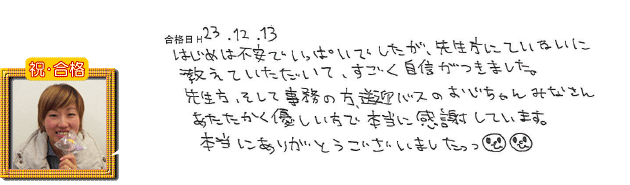 合格日 H23.12.13
はじめは不安でいっぱいでしたが、先生方にていねいに
教えていただいて、すごく自信がつきました。
先生方、そして事務の方、送迎バスのおじちゃんみなさん
あたたかく優しい方で本当に感謝しています。
本当にありがとうございましたっっ
祝・合格